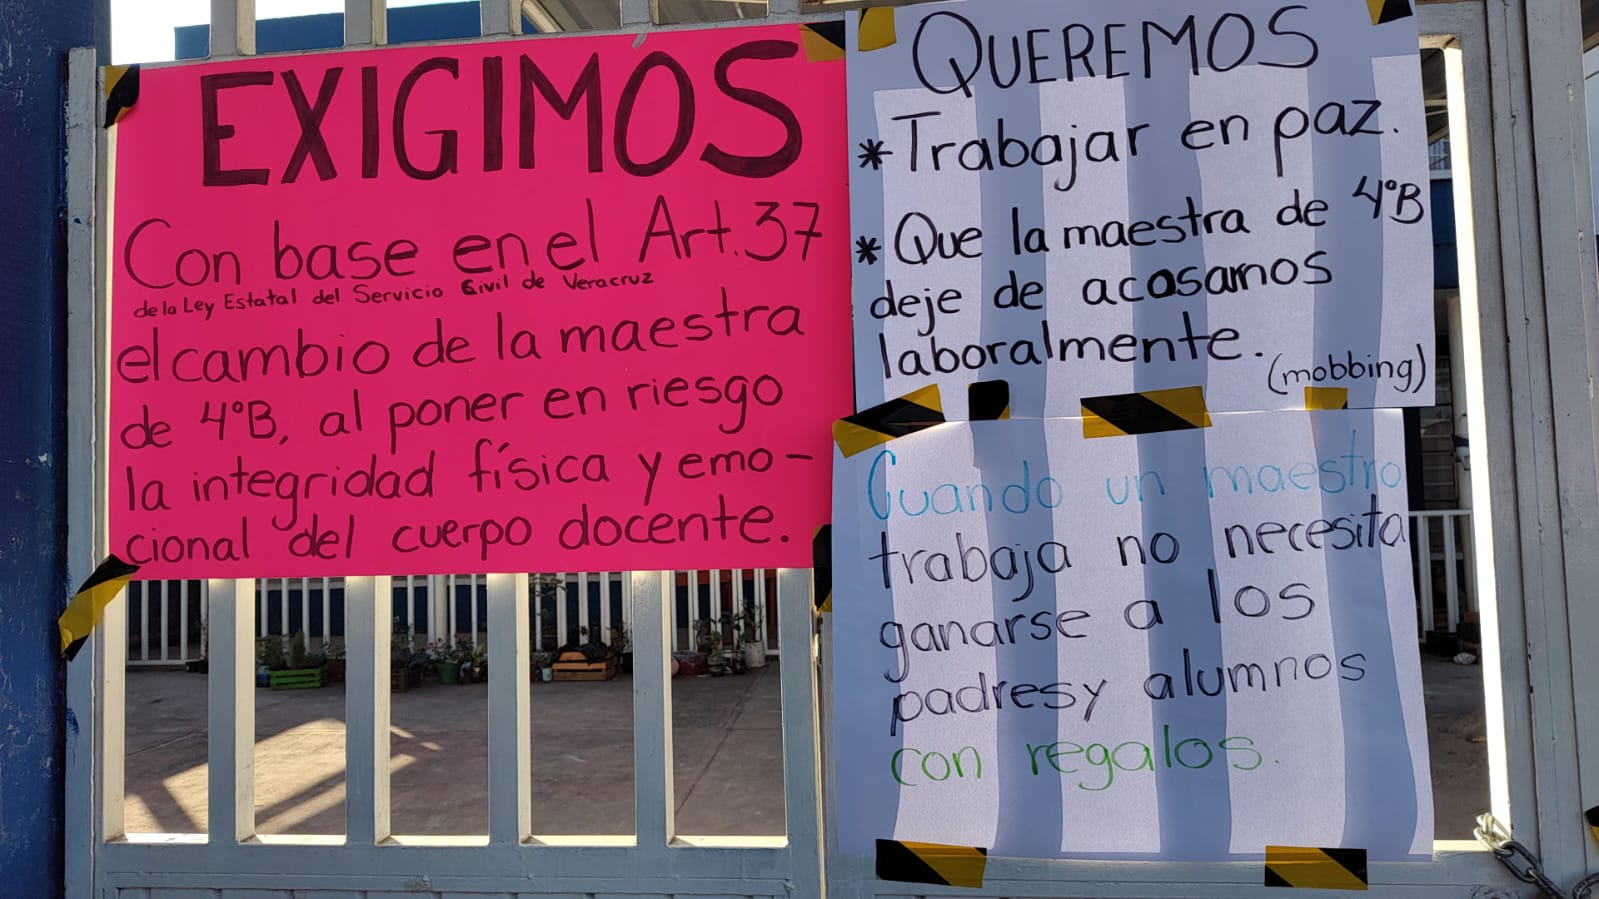 EXIGIMOS
Con base en el Art. 37
de la Ley Estatal del Servicio Civil de Veracruz
el cambio de la maestra
de 4ºB, al poner en riesgo
la integridad física y emo-
cional del cuerpo docente.
QUEREMOS
* Trabajar en paz.
* Que la maestra de 4ºB
deje de acosarnos
laboralmente.
(mobbing)
Cuando un maestro
trabaja no necesita
ganarse a los
padres y alumnos
con regalos.